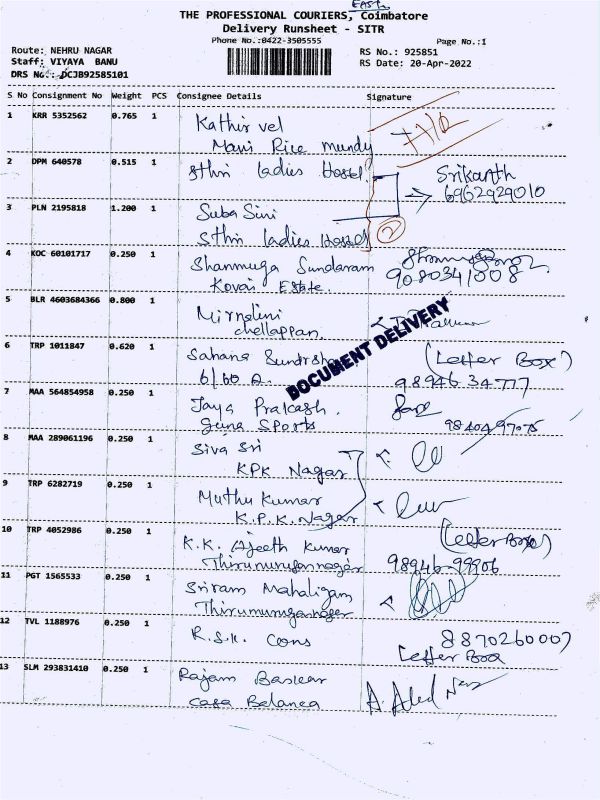 EAST
THE PROFESSIONAL COURIERS, Coimbatore
Delivery Runsheet - SITR
Phone No.:0422-3505555
Page No.:1
Route: NEHRU NAGAR
RS No.: 925851
Staff: VIYAYA BANU
RS Date: 20-Apr-2022
DRS No.: DCJB92585101
S No Consignment No Weight PCS Consignee Details Signature
1 KRR 5352562 0.765 1 Kathirvel
Mani Rice mundy
2 DPM 640578 0.515 1 Sthri ladies Hostel
Srikanth
6962929010
3 PLN 2195818 1.200 1 Suba Sini
Sthri ladies Hostel 2
4 KOC 60101717 0.250 1 Shanmuga Sundaram
Kovai Estate. 9080341008
5 BLR 4603684366 0.800 1 Mirnalini
chellappan
DOCUMENT DELIVERY
6 TRP 1011847 0.620 1 Sahana (Letter Box)
6/60 A. 98946 34777
7 MAA 564854958 0.250 1 Jaya Prakash.
Guna Sports
8 MAA 289061196 0.250 1 Siva Sri
KPK Nagar
9 TRP 6282719 0.250 1 Muthu Kumar
K.P.K. Nagar
10 TRP 4052986 0.250 1 K.K. Ajeeth Kumar (Letter Box)
Thirumurugannagar 98946-99906
11 PGT 1565533 0.250 1 Sriram Mahaligam
Thirumurugannagar
12 TVL 1188976 0.250 1 R.S.K. Cons 8870260007
Letter Box
13 SLM 293831410 0.250 1 Rajam Baskar
Casa Belanca